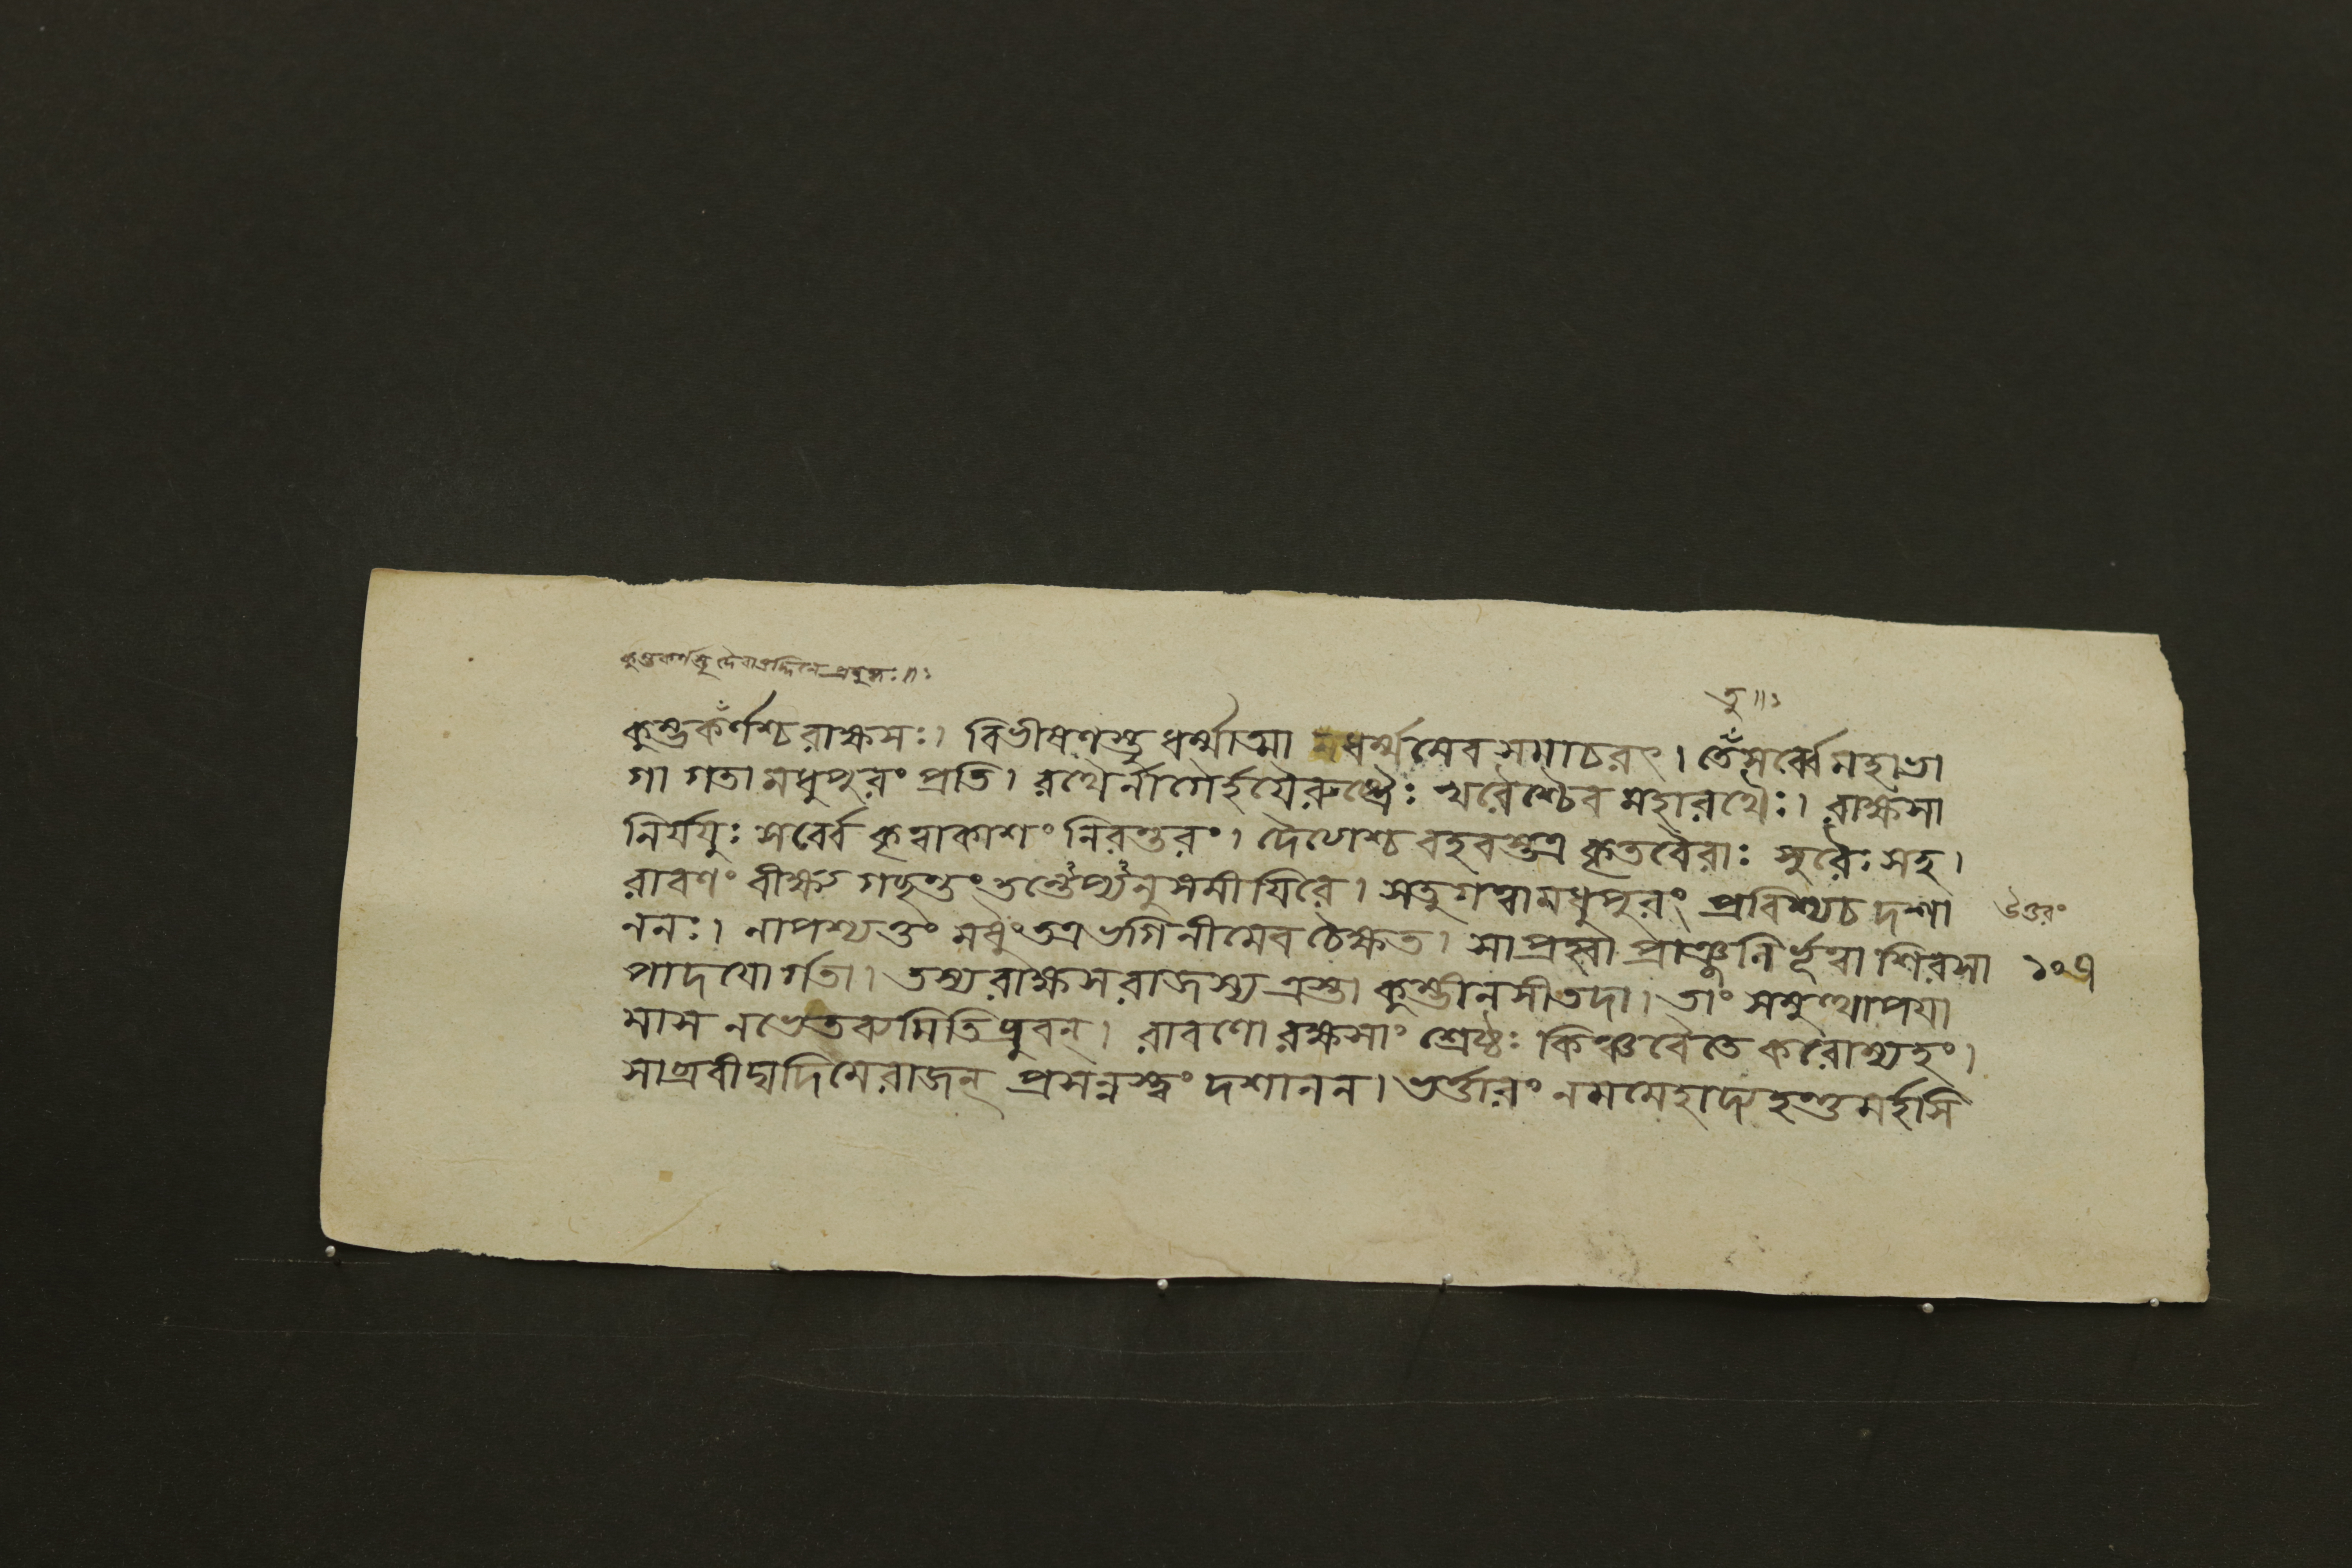 কুম্ভকর্ণস্তু দৈবাত্তদ্দিনে প্রবুদ্ধঃ॥ঃ
তু॥ঃ
কুম্ভকর্ণশ্চ রাক্ষসঃ। বিভীষণস্তু ধর্ম্মাত্মা স্বধর্ম্মমেব সমাচরৎ। তে সর্ব্বে মহাভা
গা গতা মধুপুরং প্রতি। রথৈর্নাগৈর্হয়ৈরুষ্ট্রৈঃ খরৈশ্চৈব মহারথৈঃ। রাক্ষসা
নির্যযুঃ সর্ব্বে কৃত্বাকাশং নিরন্তরং। দৈত্যাশ্চ বহবস্তত্র কৃতবৈরাঃ সুরৈঃ সহ।
রাবণং বীক্ষ্য গচ্ছন্তং তস্থৈপ্যনু সমীযিরে। সতু গত্বা মধুপুরং প্রবিশ্যচ দশা
উত্তরং
ননঃ। নাপশ্যত্তং মধুং তত্র ভগিনীমেব চৈক্ষত। সা প্রহ্বা প্রাঞ্জলির্ভূত্বা শিরসা
১০৭
পাদযোর্গতা। তস্য রাক্ষসরাজস্য ত্রস্তা কুম্ভীনসী তদা। তাং সমুত্থাপযা
মাস নভেতব্যমিতি ব্রুবন্। রাবণো রক্ষসাং শ্রেষ্ঠঃ কিঞ্চবৈতে করোম্যহং।
সাব্রবীদ্যদি মে রাজন্ প্রসন্নস্ত্বং দশানন। ভর্ত্তারং নমমেহাদ্য হন্তুমর্হসি